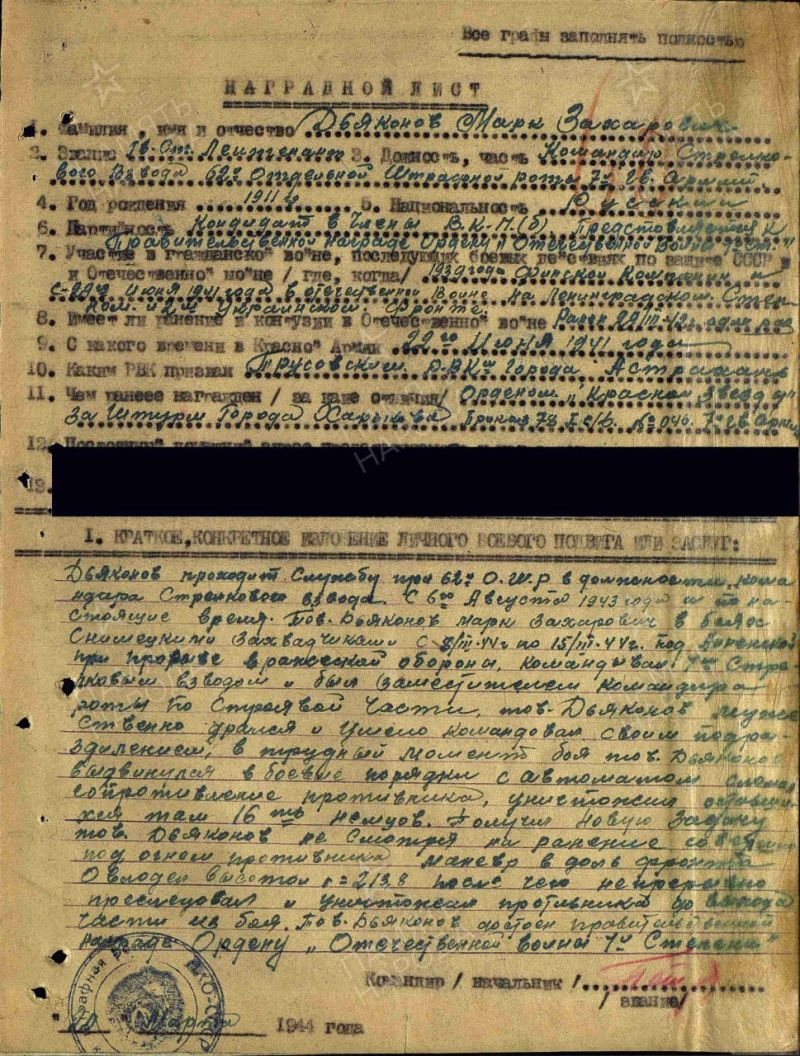 Все графы заполнять полностью
НАГРАДНОЙ ЛИСТ
1. Фамилия, имя и отчество Дьяконов Марк Захарович
2. Звание Гв. Ст. Лейтенант 3. Должность, часть Командир Стрелко-
вого Взвода 62й Отдельной Штрафной роты 7й гв. Армии
4. Год рождения 1911 г. 5. Национальность Русский
6. Партийность Кондидат в Члены В.К.П.(б). Представляется к
Правительственной награде Ордену "Отечественной Войны
7. Участие в гражданско войне, последующих боевых действиях по защите СССР и
и Отечественно войне /где, когда/ 1939 года Финской Компании и
с 22го июня 1941 года в отечественной Войне на Ленинградском, Степ-
ном и 2м Украинском Фронте.
8. Имеет ли ранение и контузии в Отечественно войне Ранен один раз
9. С какого времени в Красной Армии 22го Июня 1941 года
10. Каким РВК призван Трусовским Р.В.Км города Астрахань
11. Чем ранее награжден /за какие отличия/ Орденом "Красная Звезда"
За Штурм Города Харькова Приказ 7й Гв. № 046. 7й гв. Армии
12.
13.
1. КРАТКОЕ, КОНКРЕТНОЕ ИЗЛОЖЕНИЕ ЛИЧНОГО БОЕВОГО ПОДВИГА ИЛИ ЗАСЛУГ:
Дьяконов проходит Службу при 62й О.Ш.Р в должности кома
ндира Стрелкового взвода. С 6го Августа 1943 года и по на-
стоящие время. Тов. Дьяконов Марк Захарович в боях
С немецкими Захвадчиками с 8/III-44г по 15/III-44г. под
при прорыве вражеской обороны, командывал 1м Стре-
лковым взводом и был Заместителем Командира
роты по Строявой Части, тов. Дьяконов муже
ственно дрался и умело командовал своим подра-
зделением, в трудный момент боя тов. Дьяконов
выдвинулся в боевые порядки с автоматом сломал
сопротивление противника, уничтожил
хся там 16ть немцов. Получил новую Задачу
тов. Дьяконов не смотря на ранение совершил
под огнем противника маневр в доль фронта
Овлодел высотой = 213,8 после чего непрерывно
преследовал и уничтожал противника до выхода
части из боя. Тов. Дьяконов достоен правительственной
награде Ордену "Отечественной войны 1й Степени"
Командир /начальник/
/звание/
" " Марта 1944 года